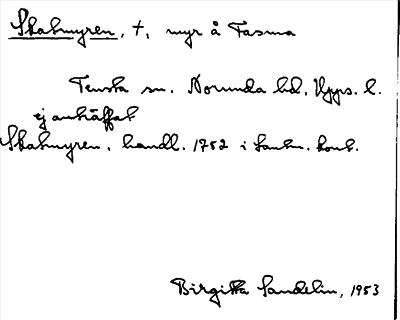 Skatmyren, †, myr å Fasma
Tensta sn. Norunda hd, Upps. l.
ej anträffat
Skatmyren, handl. 1752 i Lantm. kont.
Birgitta Sandelin, 1953